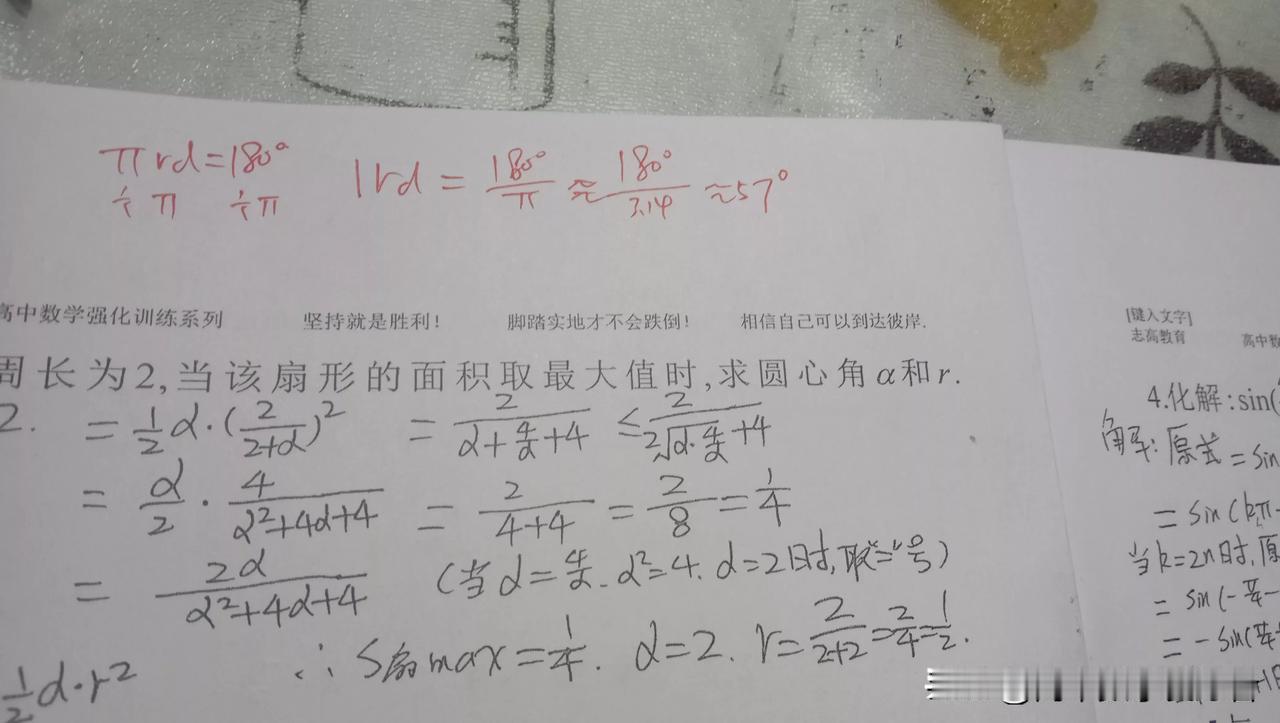 π rd = 180°   1 rd = 180°/π ≈ 180°/3.14 ≈ 57°
高中数学强化训练系列 坚持就是胜利! 脚踏实地才不会跌倒! 相信自己可以到达彼岸.
周长为2,当该扇形的面积取最大值时,求圆心角α和r.
2. = 1/2 α·(2/(2+α))² = 2/(α+4/α+4) ≤ 2/(2√(α·4/α)+4)
= α/2 · 4/(α²+4α+4) = 2/(4+4) = 2/8 = 1/4
= 2α/(α²+4α+4) (当α=4/α. α²=4. α=2时,取"="号)
∴ S扇max = 1/4. α=2. r = 2/(2+2) = 2/4 = 1/2.
1/2 α·r²
[键入文字]
志高教育 高中数
4.化解:sin(
解:原式 = sin
= sin(kπ-
当k=2n时,原
= sin(-π/4-
= -sin(π/4